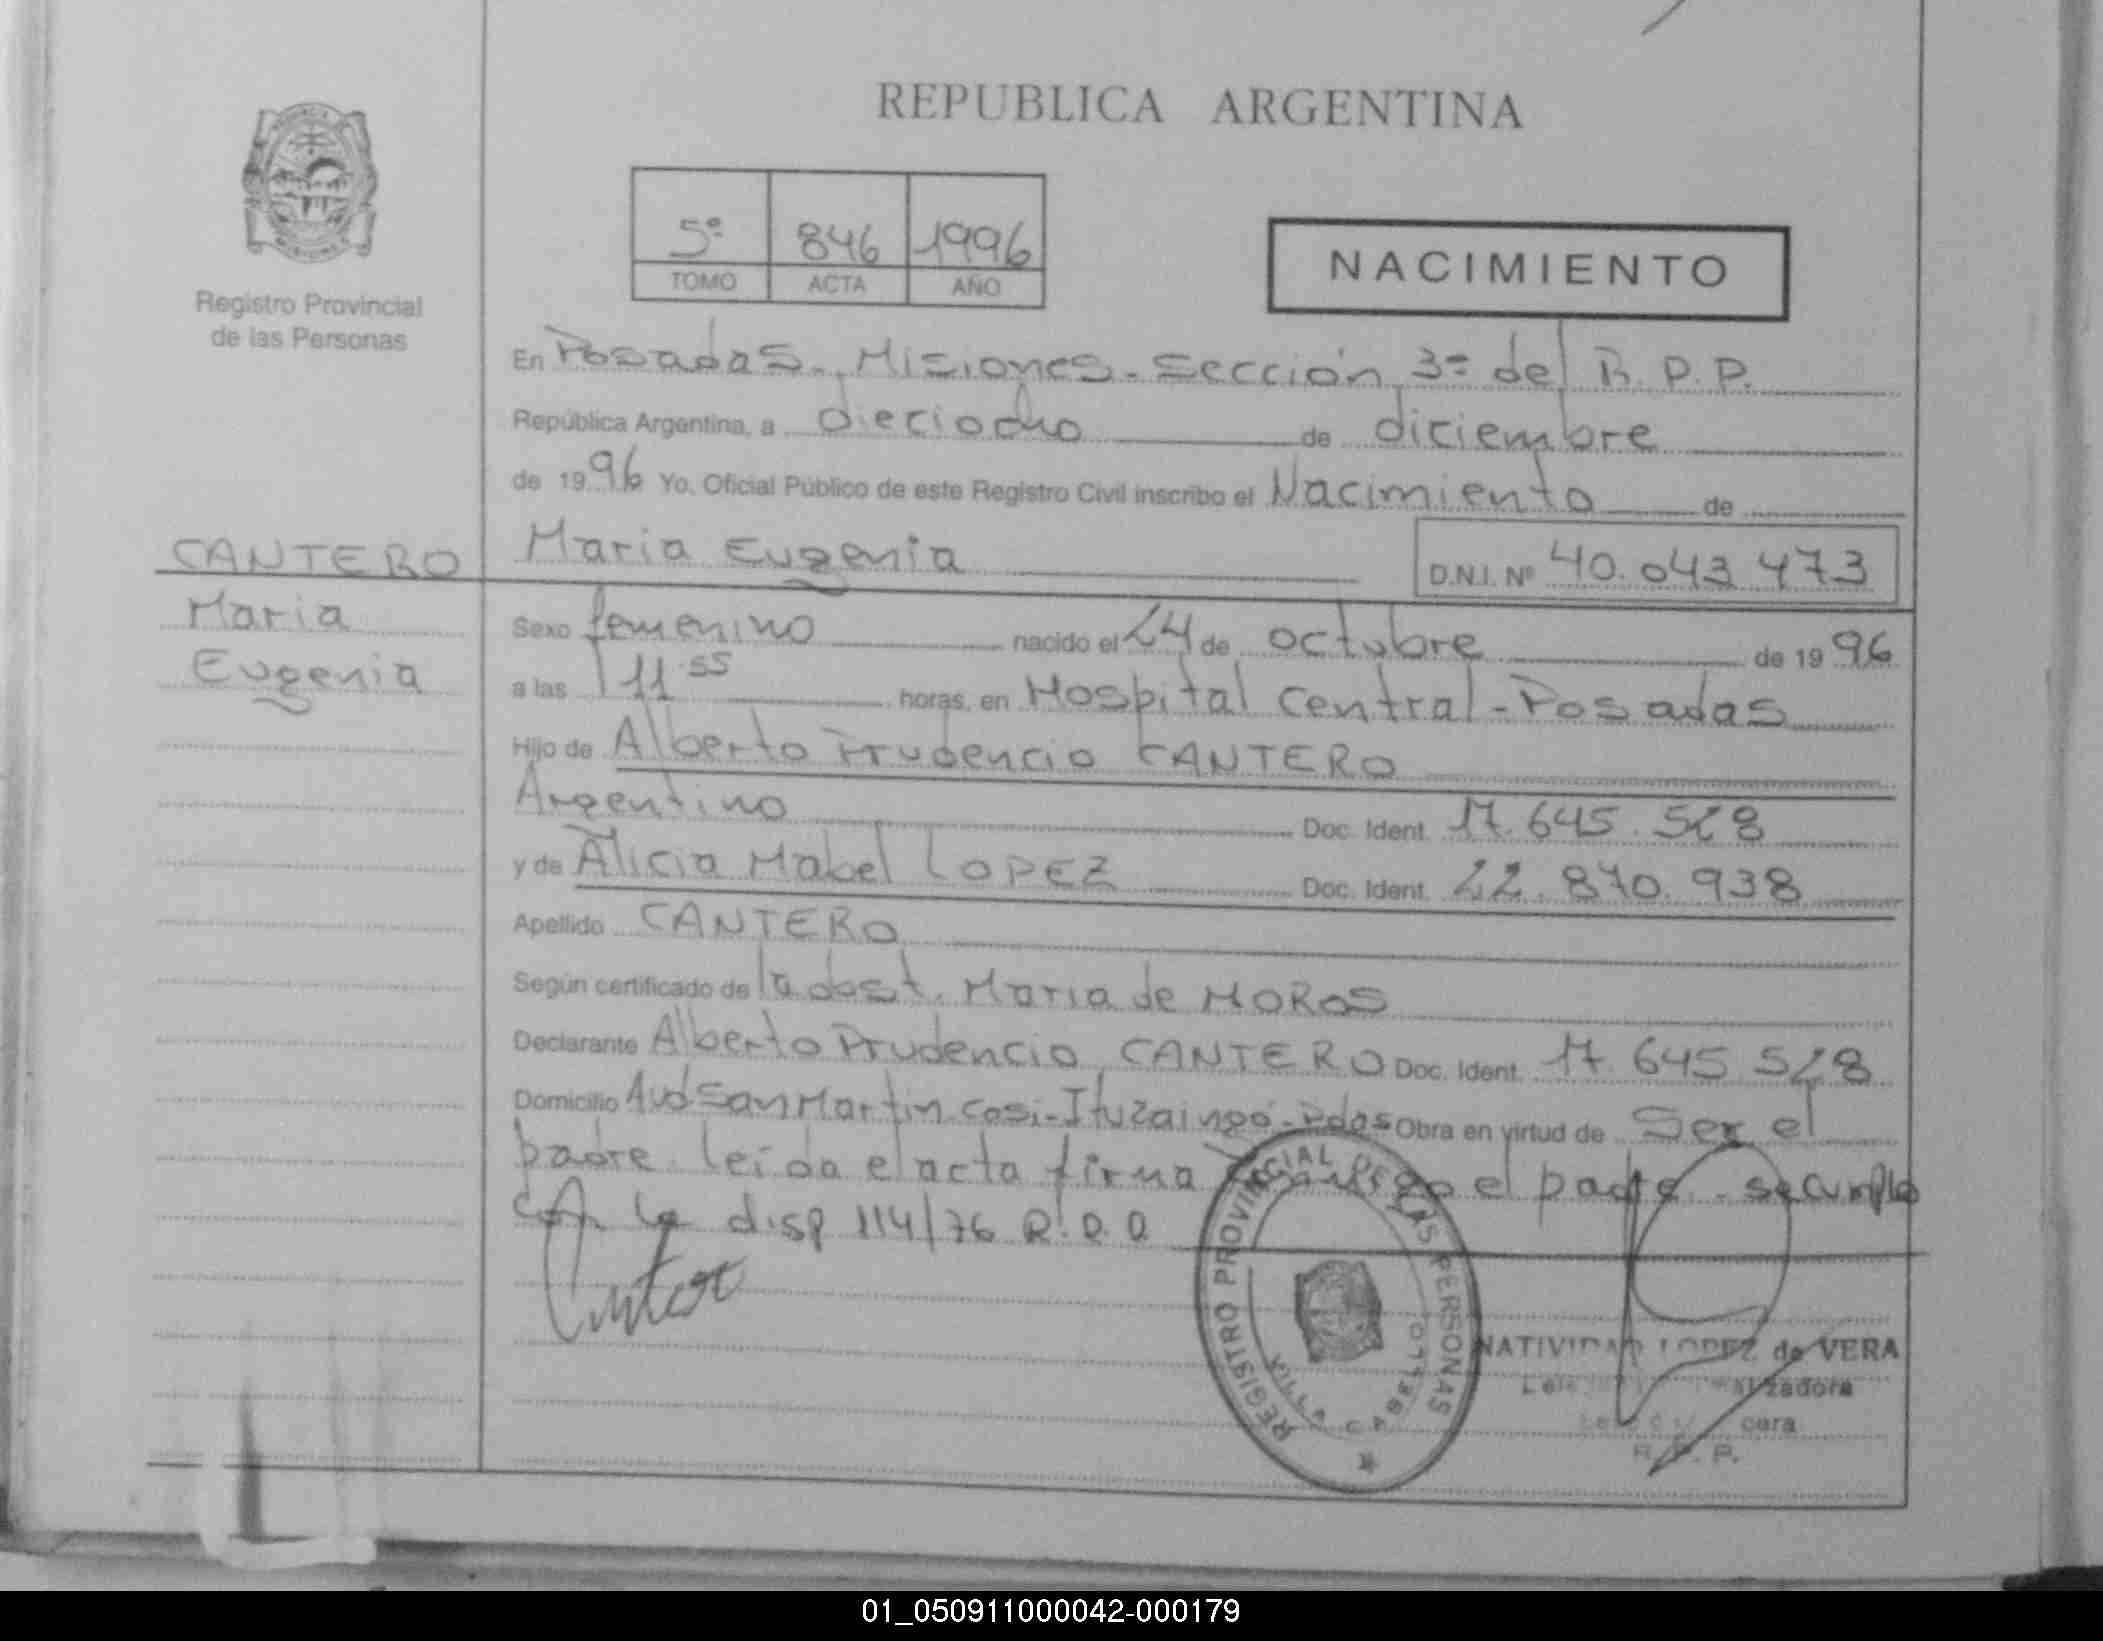 REPUBLICA ARGENTINA
Registro Provincial
de las Personas
5º 846 1996
TOMO ACTA AÑO
NACIMIENTO
En Posadas - Misiones - Sección 3ª del R. P. P.
República Argentina, a dieciocho de diciembre
de 1996 Yo, Oficial Público de este Registro Civil inscribo el Nacimiento de
CANTERO
Maria Eugenia D.N.I. Nº 40.043.473
Maria
Eugenia
Sexo femenino nacido el 24 de octubre de 1996
a las 11 55 horas, en Hospital Central - Posadas
Hijo de Alberto Prudencio CANTERO
Argentino Doc. Ident. 17.645.528
y de Alicia Mabel LOPEZ Doc. Ident. 22.870.938
Apellido CANTERO
Según certificado de la obst. Maria de MOROS
Declarante Alberto Prudencio CANTERO Doc. Ident. 17.645.528
Domicilio Avd San Martin casi - Ituzaingó - Pdas Obra en virtud de Ser el
padre. leida el acta firma conmigo el padre - se cumple
con la disp 114/76 R.P.P
REGISTRO PROVINCIAL DE LAS PERSONAS
VILLA CABELLO
NATIVIDAD LOPEZ de VERA
R. P. P.
01_050911000042-000179